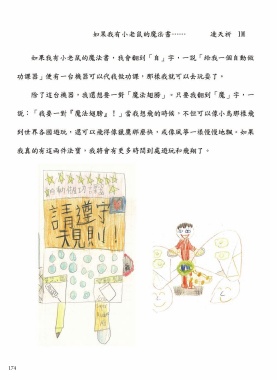 如果我有小老鼠的魔法書⋯⋯ 凌天祈 1M
如果我有小老鼠的魔法書,我會翻到「自」字,一說「給我一個自動做
功課器」便有一台機器可以代我做功課,那樣我就可以去玩耍了。
除了這台機器,我還想要一對「魔法翅膀」。只要我翻到「魔」字,一
說:「我要一對『魔法翅膀』!」當我想飛的時候,不但可以像小鳥那樣飛
到世界各國遊玩,還可以飛得像獵鷹那麼快,或像風箏一樣慢慢地飄。如果
我真的有這兩件法寶,我將會有更多時間到處遊玩和飛翔了。
請遵守
規則
174